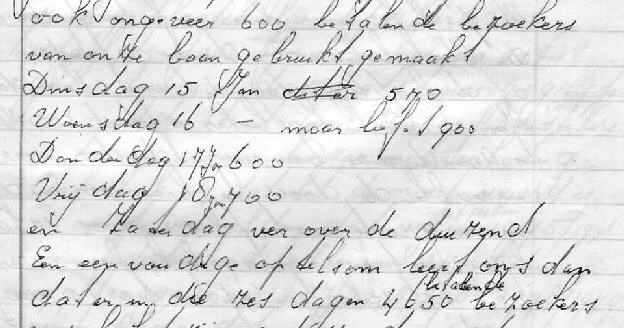 ook ongeveer 600 betalende bezoekers
van onze baan gebruikt gemaakt
Dinsdag 15 Jan 570
Woensdag 16 - maar lefst 900
Donderdag 17 Jan 600
Vrijdag 18 Jan 700
en Zaterdag ver over de duizend
Een eenvoudige optelsom leert ons dan
betalende
dat er in die zes dagen 4650 bezoekers